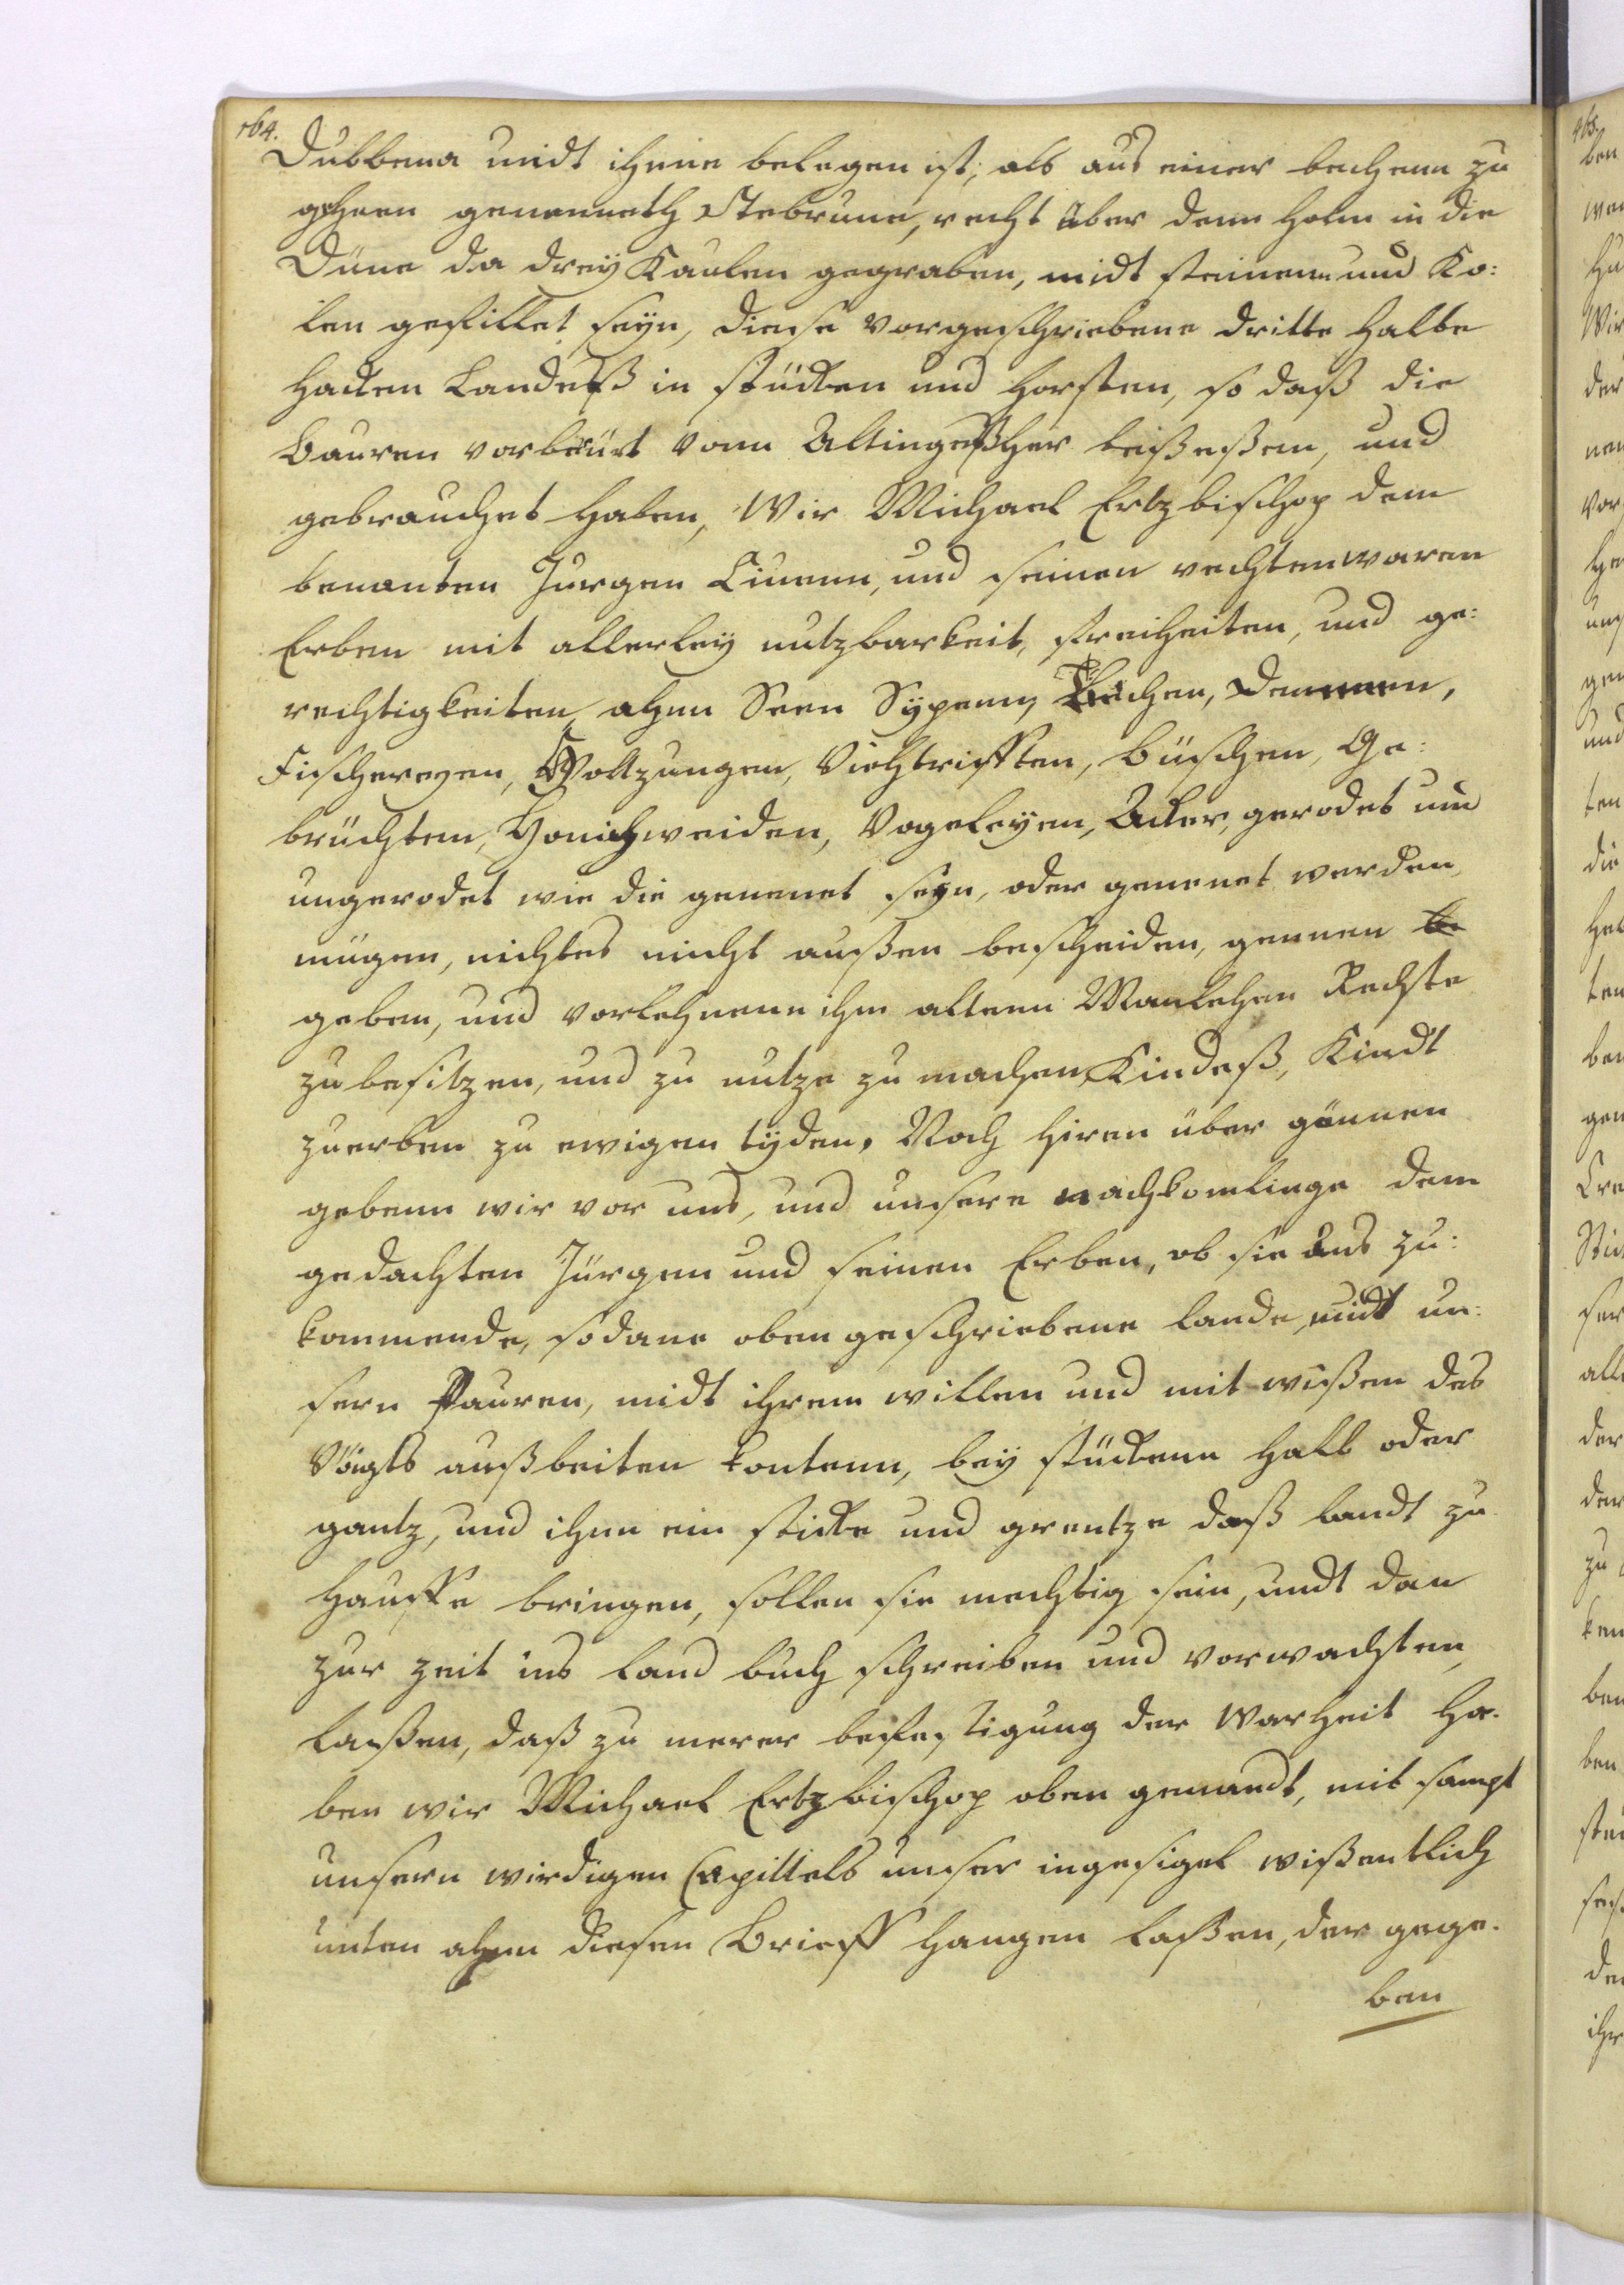 164.
Dubbena midt ihme belegen ist, als aus einer bechenn zu
gehnen genenneth Stebrune, recht über denn Holm in die
Düna da drey Kaulen gegraben, midt steinenn und Ko:
len gefillet seyn, diese vorgeschriebene dritte halbe
Hacken Landeß in stücken und Horsten, so daß die
Bauren vorbeürt vonn Altingeßher beißeßem, und
gebrauchet haben, Wir Michael Ertzbischop dem
benanten Jurgen Liuenn, und seinen rechten waren
Erben mit allerley nutzbarkeit, freiheiten, und ge:
rechtigkeiten, ahnn Seen Sypenn, Bechen, Demmen,
Fischereyen, Holtzungen, Viehtrifften, büschen, Ge:
brüchten, Honichweiden, Vogeleyen, Acker, gerodet und
ungerodet wie die genenet seyn, oder genenet werden
mügen, nichtes nicht außen bescheiden, gennen
geben, und vorlehnenn ihm altenn Manlehen Rechte
zu besitzen, und zu nutze zu machen, Kindeß, Kindt
zuerben zu ewigen tyden. Noch hiren über gönnen
gebenn wir vor uns, und unsere nachkomlinge dem
gedachten Jürgen und seinen Erben, ob sie aus zu:
kommende, sodane oben geschriebene lande, midt un:
sern Pauren, midt ihrem willen und mit wißen des
Vöigts außbeiten kontenn, bey stückenn halb oder
gantz, und ihnn ein sticke und grentze daß landt zu
hauffe bringen, sollen sie mechtig sein, undt dan
zur zeit ins land buch schreiben und vorwachten
laßen, daß zu merer befestigung der Warheit ha:
ben wir Michael Ertzbischop oben genandt, mit sampt
unsern wirdigen Capittels unser ingesigel wißentlich
unten ahnn diesen Brieff hangen laßen, der gege:
ben